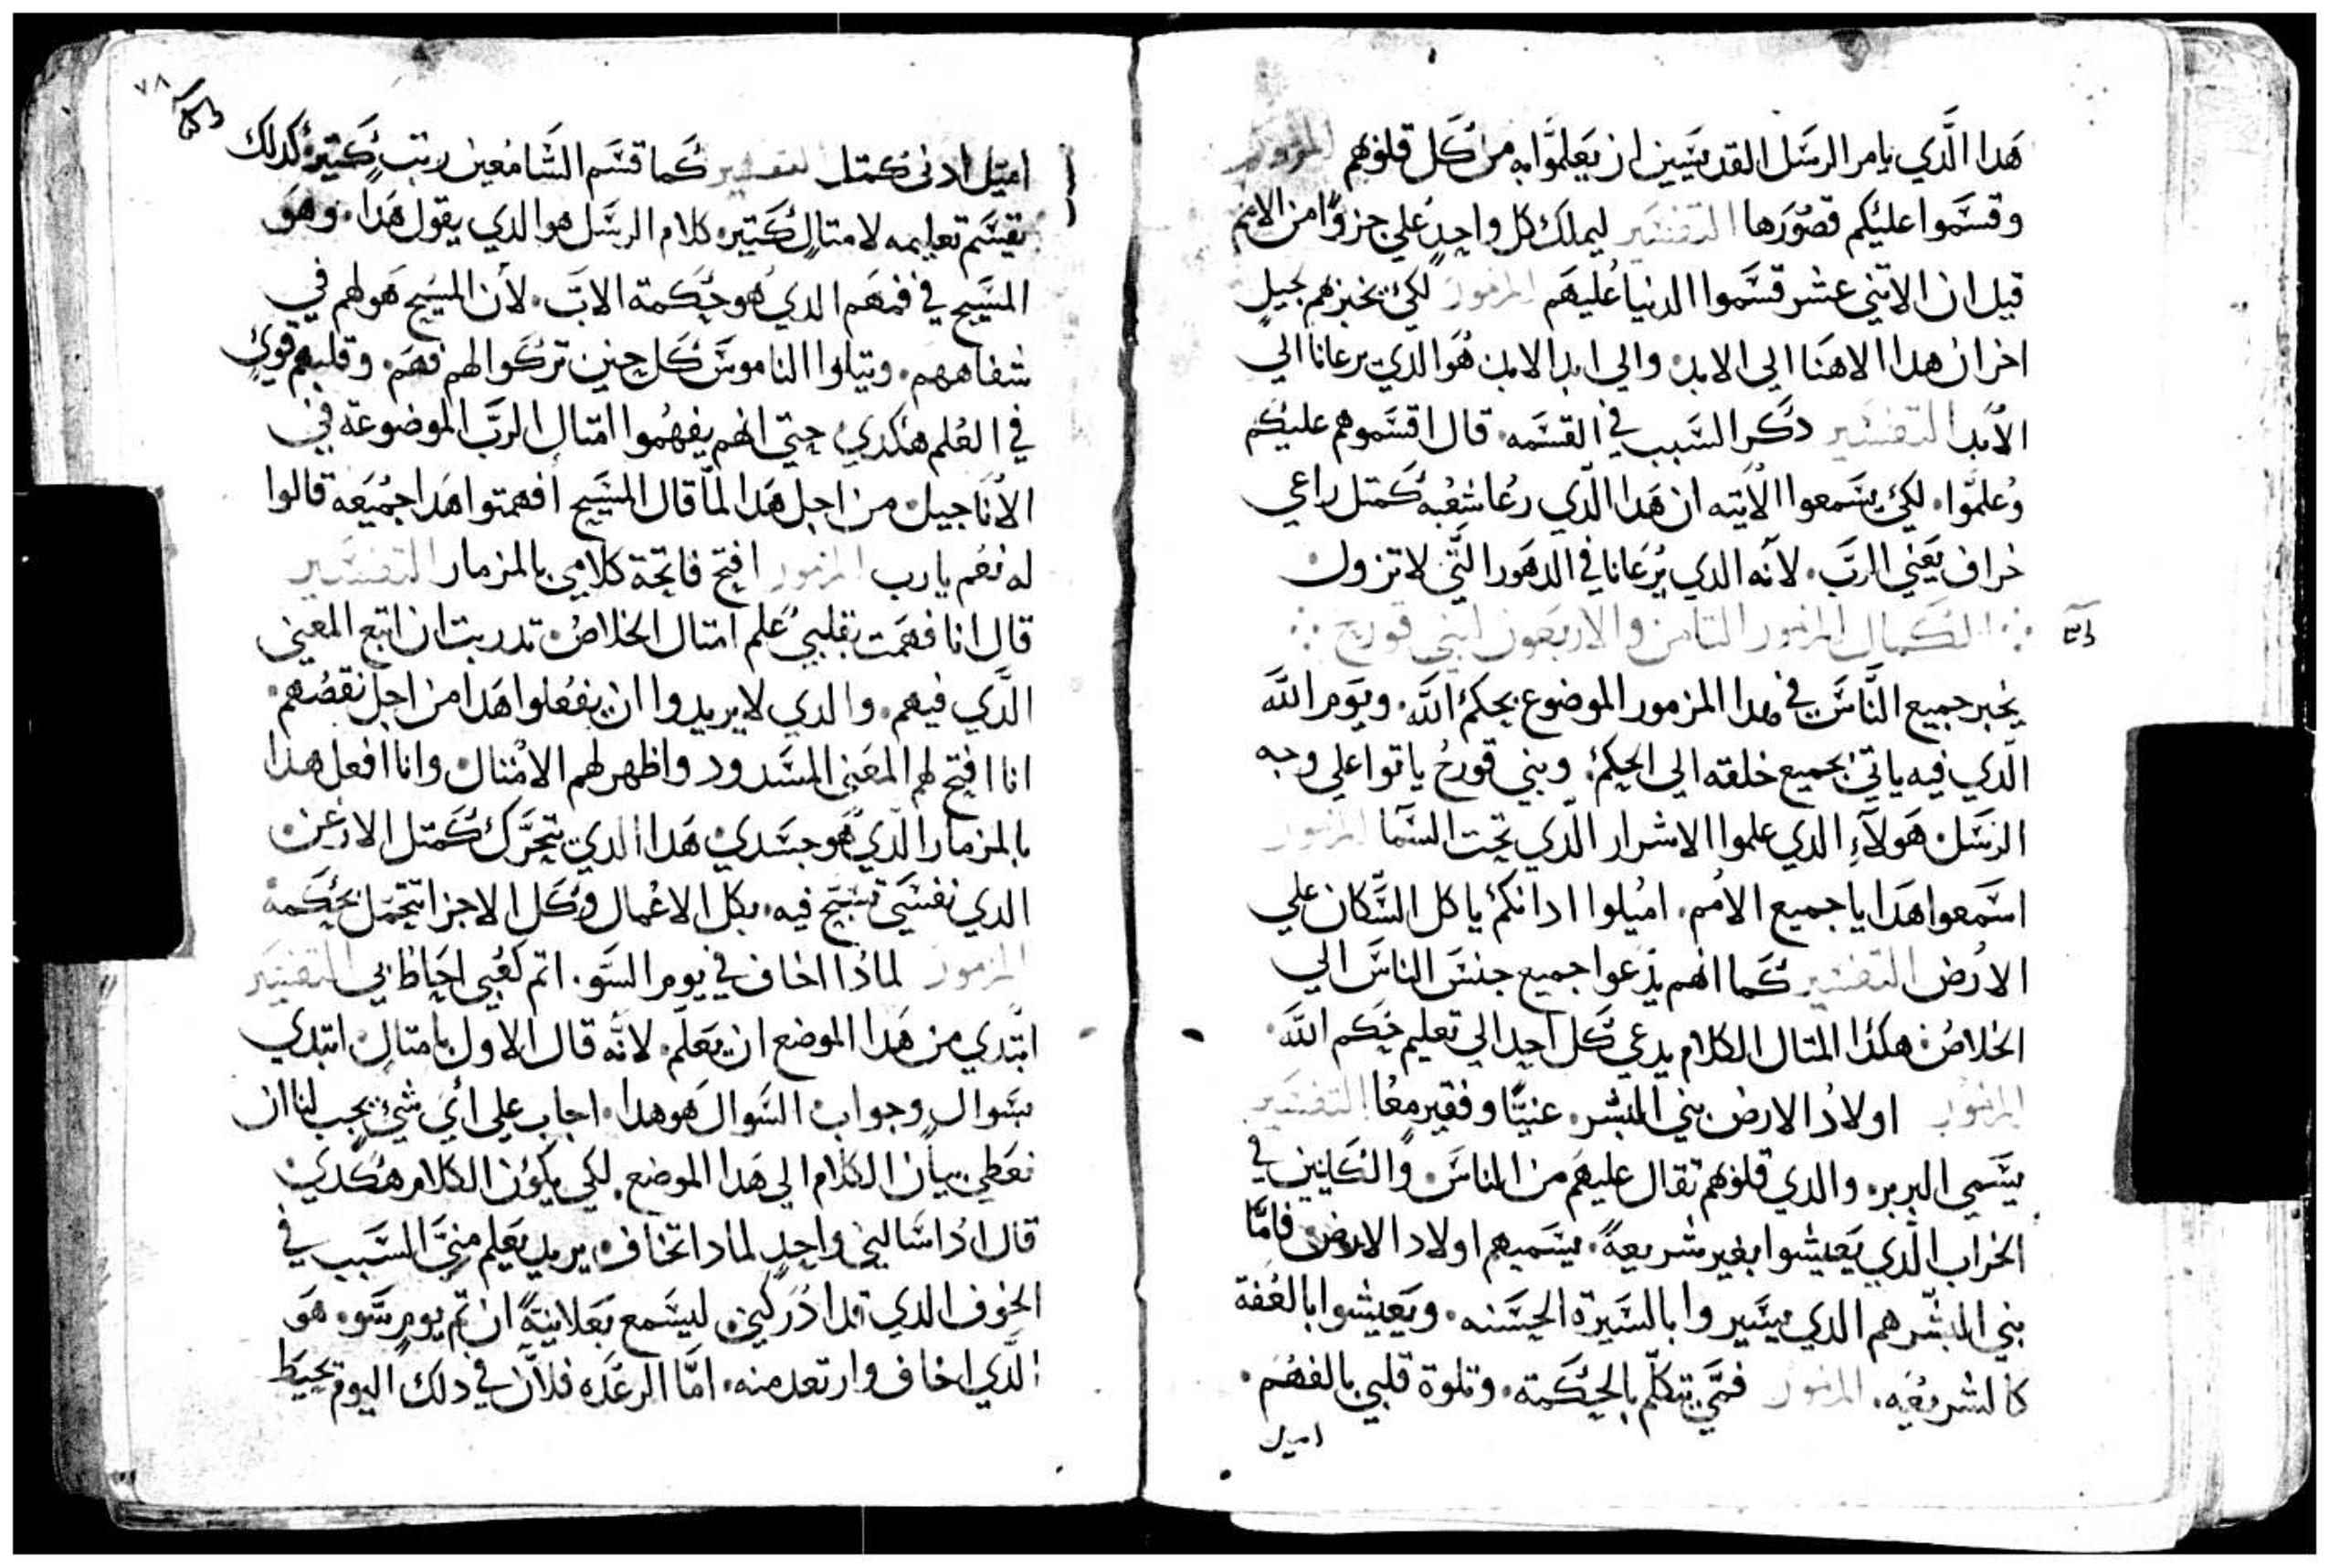 هدا الَّدي يامر الرسَل القديسَين ان يَعلمَّوا به من كَل قلوبهم المزمور
وقسَّموا عليكم قصُورَها التفسَير ليملك كل واحدٍ علي جزوًا من الامم
قيل ان الاتني عشر قسَّموا الدنيا عليهَم المزمور لكي تخبرهم لجيلٍ
اخر ان هدا الاهَنا الي الابد والي ابد الابد هُوَ الدي يرعانا الي
الأبد التفسَير دكَر السَبب في القسَمه قال اقسَموهم عليكم
وعلمَّوا لكي يسَمعوا الأتيه ان هَدا الَّدي رعا شعُبه كَمتل راعي
خراف يَعَني الربَ لأنه الدي يُرعَانا في الدهَور الَّتي لا تزول
الكَمال المزمور التامن والاربعَون لبني قورح
يخبر جميع النَّاسَ في هدا المزمور الموضوع بحكم الله ويوَم اللهَ
الَّدي فيه ياتي بجميع خلقته الي الحكم وبني قورحُ ياتوا علي وجه
الرسَل هَولآءِ الدي علموا الاشرار الَّدي تحت السَمآ المزمور
اسَمعوا هَدا يا جميع الأمم اميلوا ادانكم يا كل السَّكان علي
الارُض التفسَير كَما انهم يدَعوا جميع جنسَ الناسَ الي
الخلاصُ هكدا المتال الكلام يدعي كَل احدٍ الي تعليم حَكم اللهَ
المزمور اولادُ الارض بني البشر غنيًّا وفقير معًا التفسَير
يسَمي البربر والدي قلوبهَم تقال عليهَم من الناسَ والسَكانين في
الخراب الَّدي يَعَيشوا بغير شريعهً يسَميهم اولاد الارض فامَّا
بني البشر هم الدي يسَيروا بالسَيرة الحسَنه ويَعيشوا بالعُفة
كالشريعَه المزمور فمَّي يتكلّم بالحكَمته وتلوة قلبي بالفهَم
اميل
٧٨
اميل ادني كَمتل التفسير كَما قسَم السَّامعُين ربتبٍ كَتيره كَدلك
يقسَّم تعاليمه لامتالٍ كَتيره كلام الرسَل هو الدي يقول هَدا وهوَ
المسَيح في فمهَم الدي هو حكَمة الابَ لأن المسَيح هَو لهم في
شفاههَم ويتلوا الناموسَ كَل حين تركَوا لهم فهَم وقلبهم قوي
في العُلم هكدي حتي انهم يفهمُوا امتال الربَّ الموضوعة في
الأناجيل من اجل هَدا لمَّا قال المسَيح افهمتوا هَدا جميعَه قالوا
له نعُم يا رب المزمور افتح فاتحة كلامي بالمزمار التفسَير
قال انا فهمَت بقلبي عُلم امتال الخلاصُ تدربت ان اتبع المعني
الَّدي فيهم والدي لا يريدوا ان يفعُلوا هَدا من اجل نقصُهم
انا افتح لهم المعَني المسَدود واظهر لهم الامتال وانا افعل هدا
بالمزمار الَّدي هو جسَدي هَدا الدي يتحرَّك كَمتل الارغن
الدي نفسَي تسَبّح فيه بكل الاعمُال وكَل الاجزا تتحمَل بحكَمة
المزمور لمادُا اخاف في يوم السَو اتم كَعُبي احَاط بي التفسَير
ابتدي من هَدا الموضع ان يَعَلّم لأنَّه قال الاول بامتالٍ ابتدي
بسَوالٍ وجواب السَوال هَو هدا اجاب علي أيَ شيٍ يجب لنا ان
نعَطي بيان الكلام الي هَدا الموضع لكي يكوُن الكلام هَكَدي
قال ادُا سَالني واحدٍ لمادا تخاف يريد يَعلم منيَّ السَبب في
الخوف الدي قد ادُركني ليسَمع بعَلانيةً ان تم يوم سَّو هوَ
الَّدي اخاف وارتعد منه امَّا الرعدَّه فلأن في دلك اليوم تحيط